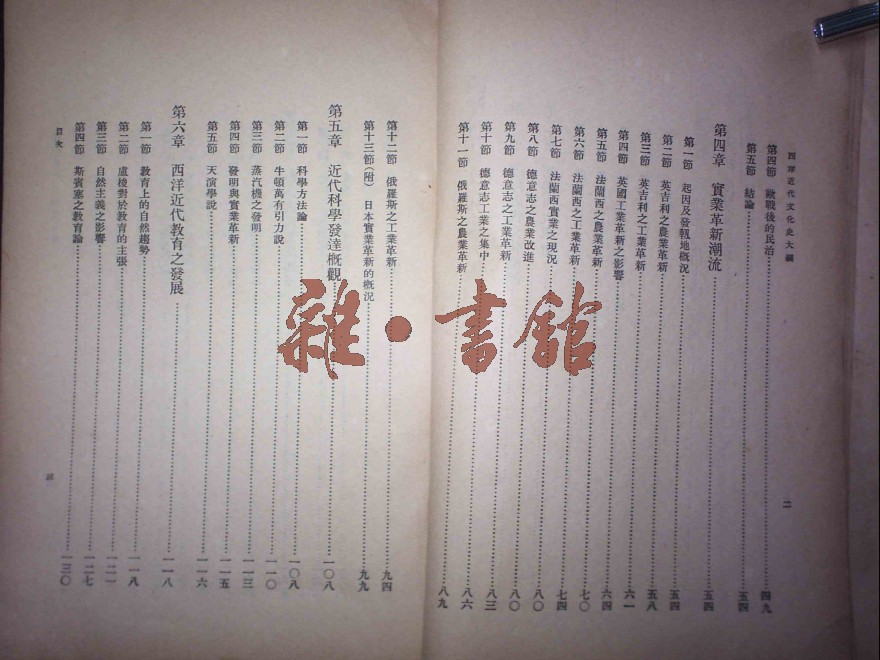 西洋近代文化史大綱
二
第四節 歐戰後的民治 四九
第五節 結論 五四
第四章 實業革新潮流 五四
第一節 起因及發軔地概況 五四
第二節 英吉利之農業革新 五四
第三節 英吉利之工業革新 五八
第四節 英國工業革新之影響 六一
第五節 法蘭西之農業革新 六四
第六節 法蘭西之工業革新 七〇
第七節 法蘭西實業之現況 七四
第八節 德意志之農業改進 八〇
第九節 德意志之工業革新 八〇
第十節 德意志工業之集中 八三
第十一節 俄羅斯之農業革新 八六
八九
第十二節 俄羅斯之工業革新 九四
第十三節(附) 日本實業革新的概況 九九
第五章 近代科學發達概觀 一〇八
第一節 科學方法論 一〇八
第二節 牛頓萬有引力說 一一〇
第三節 蒸汽機之發明 一一三
第四節 發明與實業革新 一一五
第五節 天演學說 一一六
第六章 西洋近代教育之發展 一一八
第一節 教育上的自然趨勢 一一八
第二節 盧梭對於教育的主張 一二一
第三節 自然主義之影響 一二七
第四節 斯賓塞之教育論 一三〇
目次
雜·書館